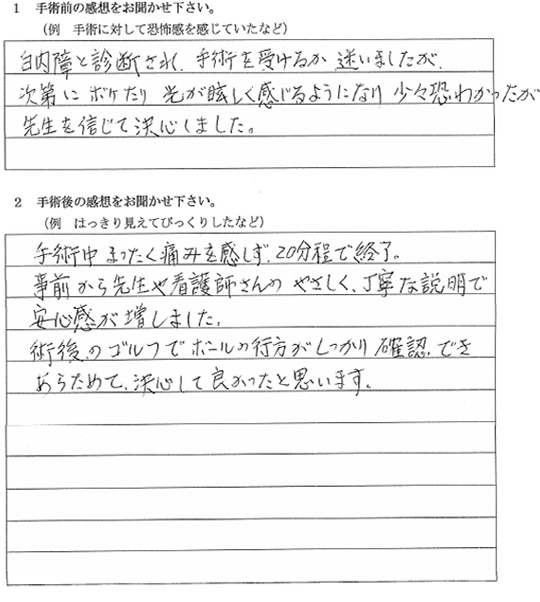 1 手術前の感想をお聞かせ下さい。
（例 手術に対して恐怖感を感じていたなど）
白内障と診断され、手術を受けるか 迷いましたが、
次第に ボケたり 光が眩しく感じるようになり 少々恐わかったが
先生を信じて決心しました。
2 手術後の感想をお聞かせ下さい。
（例 はっきり見えてびっくりしたなど）
手術中 まったく痛みを感じず、20分程で終了。
事前から先生や看護師さんの やさしく、丁寧な説明で
安心感が増しました。
術後のゴルフでボールの行方がしっかり確認でき
あらためて、決心して良かったと思います。